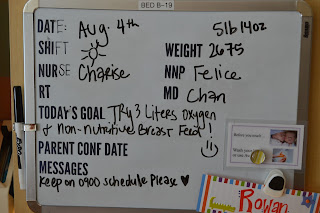 BED B-19
DATE: Aug. 4th 5lb 14oz
SHIFT WEIGHT 2675
NURSE Charise NNP Felice
RT MD Chan
TODAY'S GOAL Try 3 Liters oxygen
& non-nutritive Breast Feed!
PARENT CONF DATE
MESSAGES
Keep on 0900 schedule Please ♥
Rowan